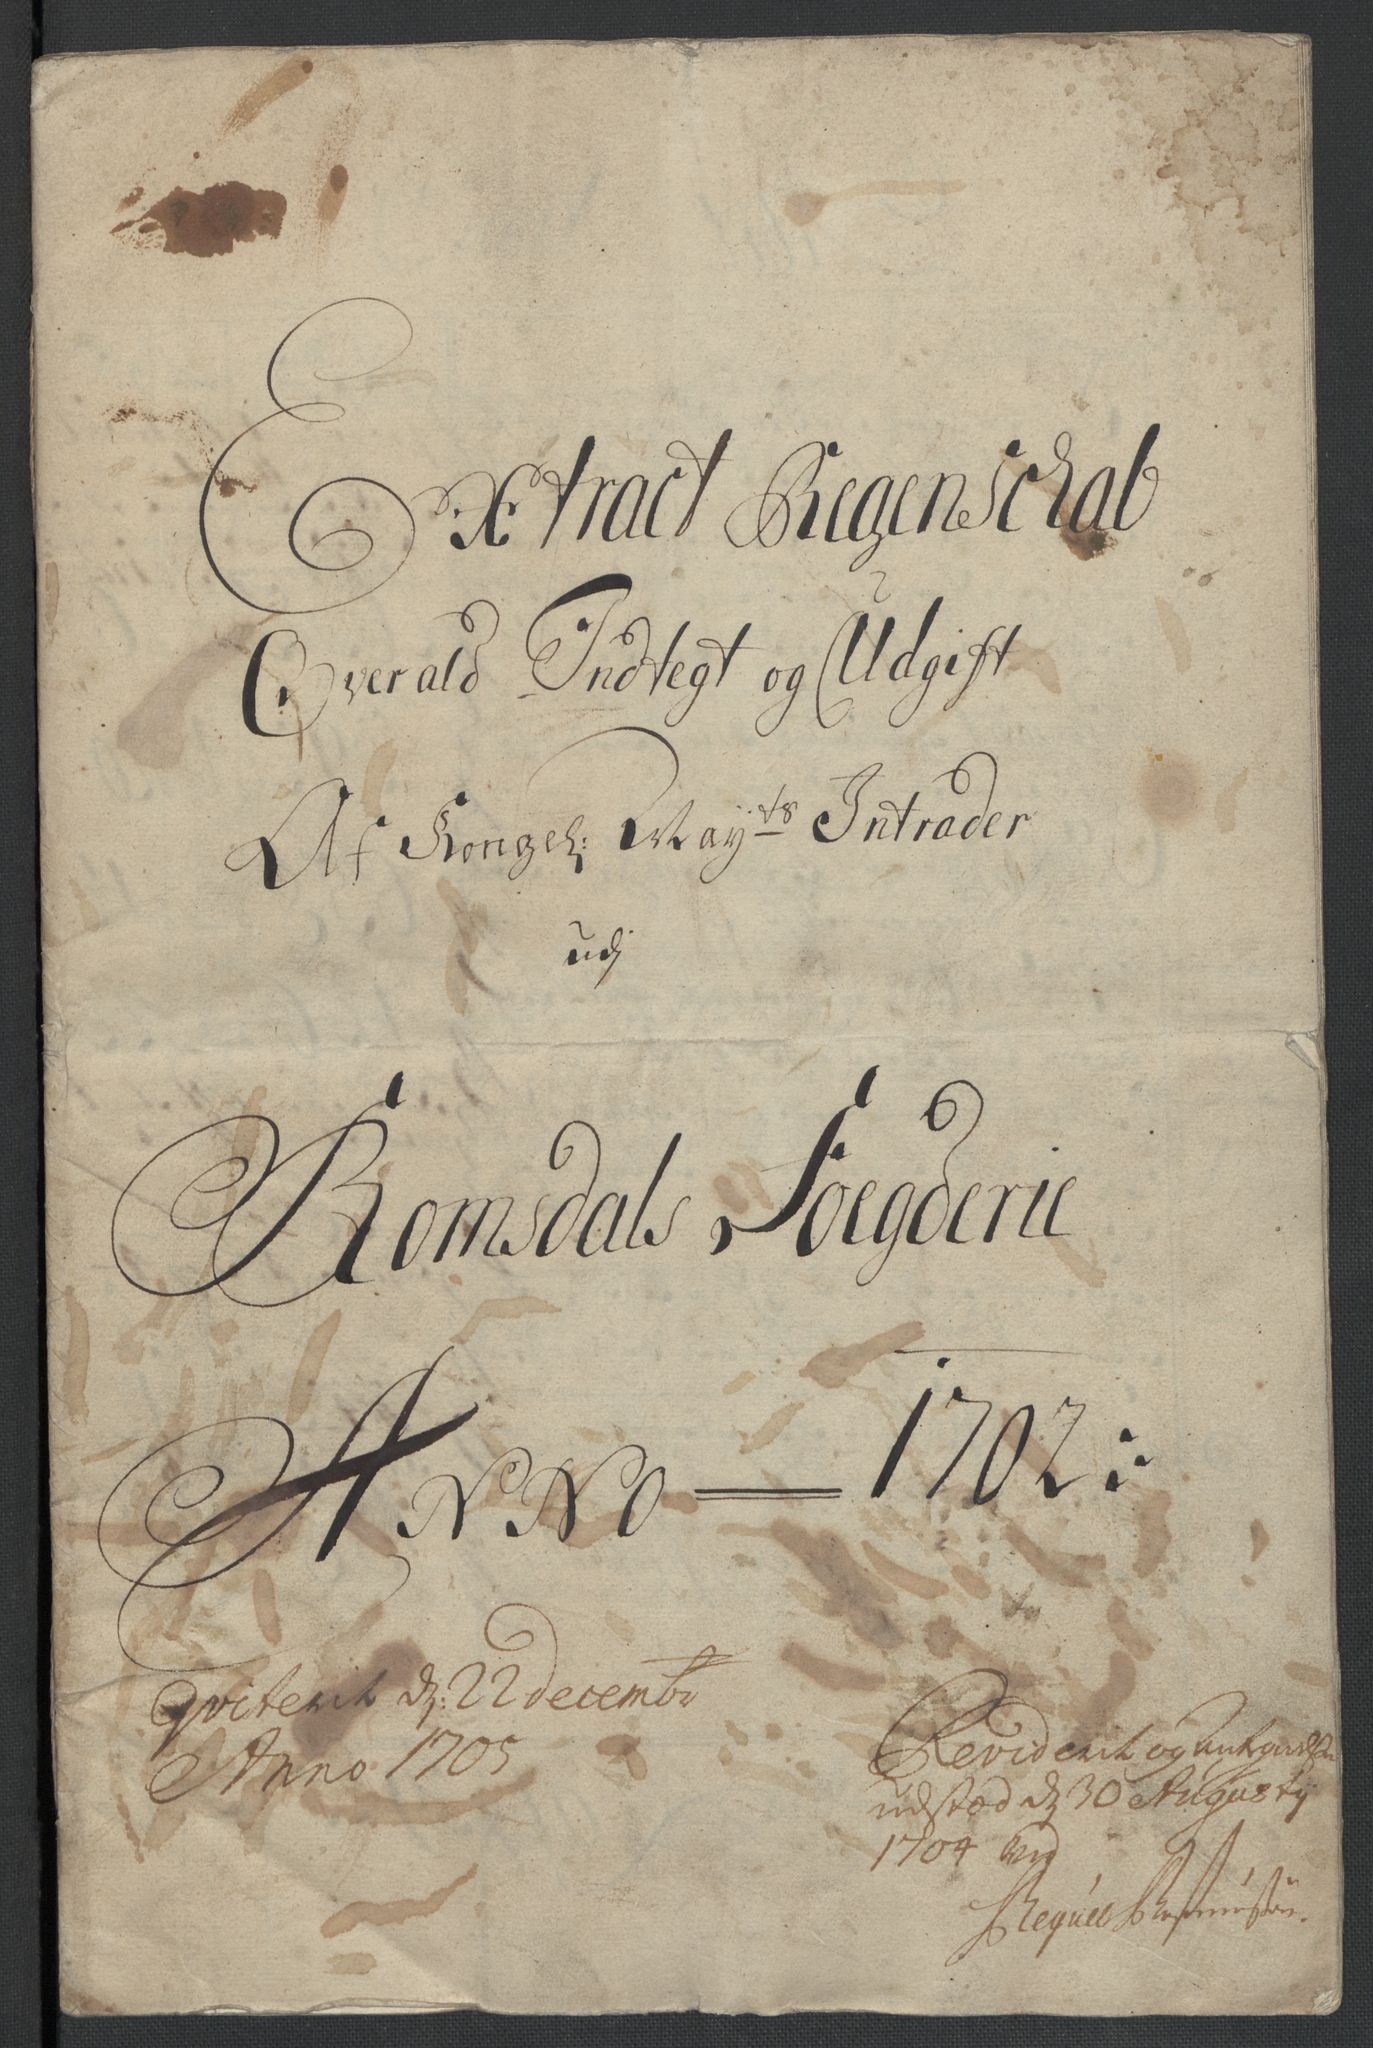 Extract Regenschab
Over ald Indtegt og Udgift
Af Kongel: May.ts Intrader
udj
Romsdals Foegderie
Anno = 1702:
Qviterit d: 22 decembr
Anno 1705
Reviderit og
udstæd d 30 Augusty
1704 ved